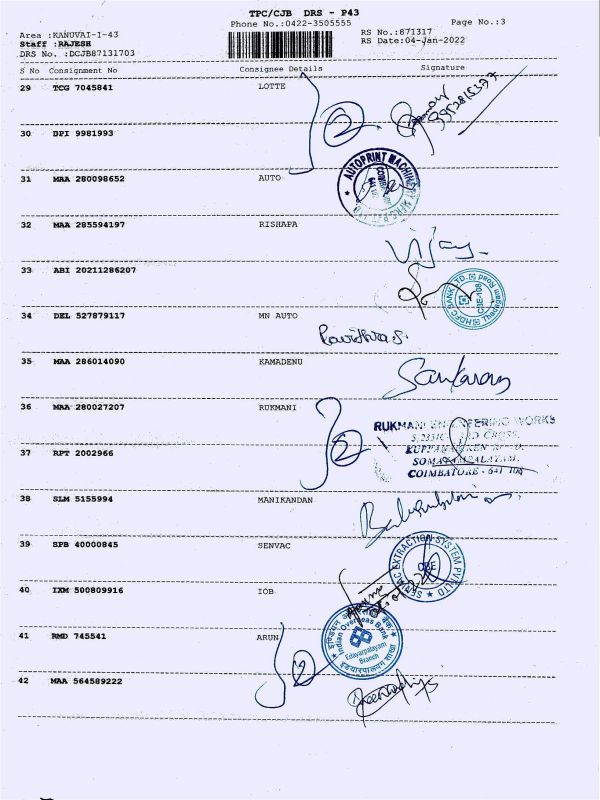 TPC/CJB DRS - P43
Phone No.:0422-3505555
Page No.:3
Area :KANUVAI-I-43
RS No.:871317
Staff :RAJESH
RS Date:04-Jan-2022
DRS No. :DCJB87131703
S No Consignment No Consignee Details Signature
29 TCG 7045841 LOTTE
30 DPI 9981993
31 MAA 280098652 AUTO
AUTOPRINT MACHINERY
32 MAA 285594197 RISHAPA
Vijay
33 ABI 20211286207
HDFC BANK LTD. Thadagam Road
CBE-108
34 DEL 527879117 MN AUTO
Pavithra S.
35 MAA 286014090 KAMADENU
Sankaran
36 MAA 280027207 RUKMANI
RUKMANI ENGINEERING WORKS
CROSS,
COIMBATORE - 641 108
37 RPT 2002966
38 SLM 5155994 MANIKANDAN
39 SPB 40000845 SENVAC
SENVAC EXTRACTION SYSTEM PVT LTD
CBE
40 IXM 500809916 IOB
41 RMD 745541 ARUN
Indian Overseas Bank
Edayarpalayam
Branch
42 MAA 564589222